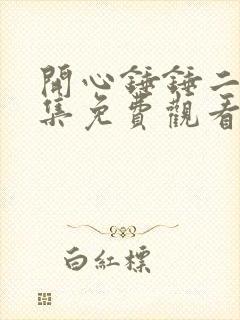 開心錘錘二
集免費觀看
白紅標